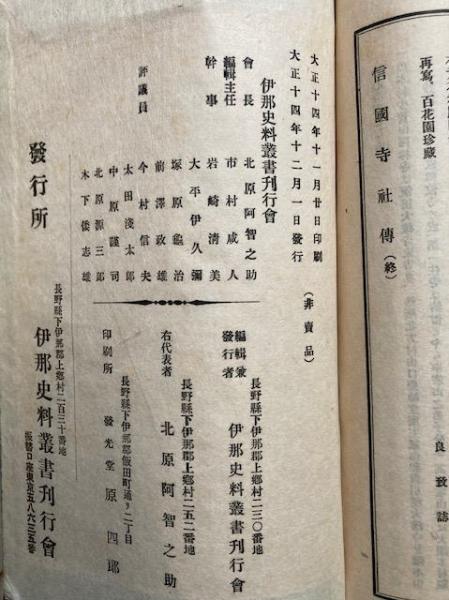 再寫、百花園珍藏
良致誌
信國寺社傳（終）
大正十四年十一月廿日印刷
大正十四年十二月一日發行
（非賣品）
伊那史料叢書刊行會
會長 北原阿智之助
編輯主任 市村咸人
幹事 岩崎清美
大平伊久彌
評議員 塚原鎰治
前澤政雄
今村信夫
太田淺太郎
中原謹司
北原源三郎
木下倭志雄
長野縣下伊那郡上鄕村二三〇番地
編輯兼發行者 伊那史料叢書刊行會
長野縣下伊那郡上鄕村二五二番地
右代表者 北原阿智之助
長野縣下伊那郡飯田町通リ二丁目
印刷所 發光堂 原四郎
發行所
長野縣下伊那郡上鄕村二百三十番地
伊那史料叢書刊行會
振替口座東京五八六三五番